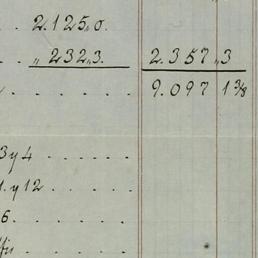 . . 2.125„0.
. . „ 232„3. 2.357„3
. . . . . 9.097 1 3/8
3 y 4 . . . . .
1. y 12 . . . . .
6. . . . . .
. . . . .